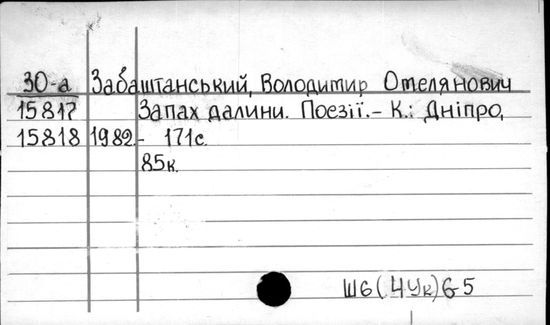 30-а Забаштанський, Володимир Омелянович
15817 Запах далини. Поезії.- К.: Дніпро,
15818 1982.- 171с.
85к.
Ш6(4Ук)6-5